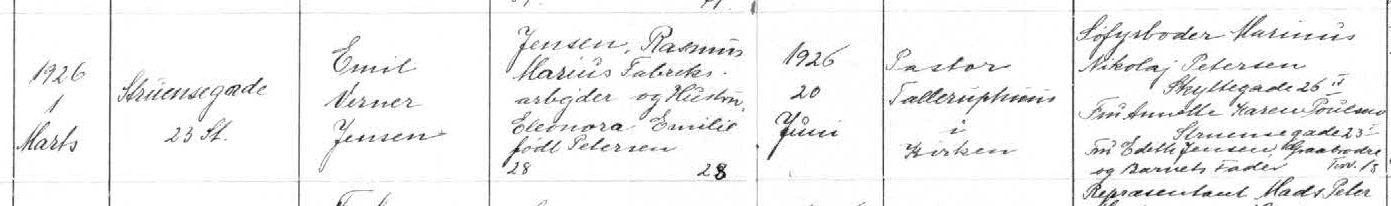 1926
1
Marts
Struensegade
23 St.
Emil
Verner
Jensen
Jensen, Rasmus
Marius Fabriks-
arbejder og Hustru,
Eleonora Emilie
født Petersen
28 28
1926
20
Juni
Pastor
Talleruphuus
i
Kirken
Søfyrbøder Marinus
Nikolaj Petersen
Skyttegade 26 II
Fru Annette Karen Poulsen
Struensegade 23 I
Fru Edith Jensen,
og Barnets Fader
Repræsentant Mads Peter